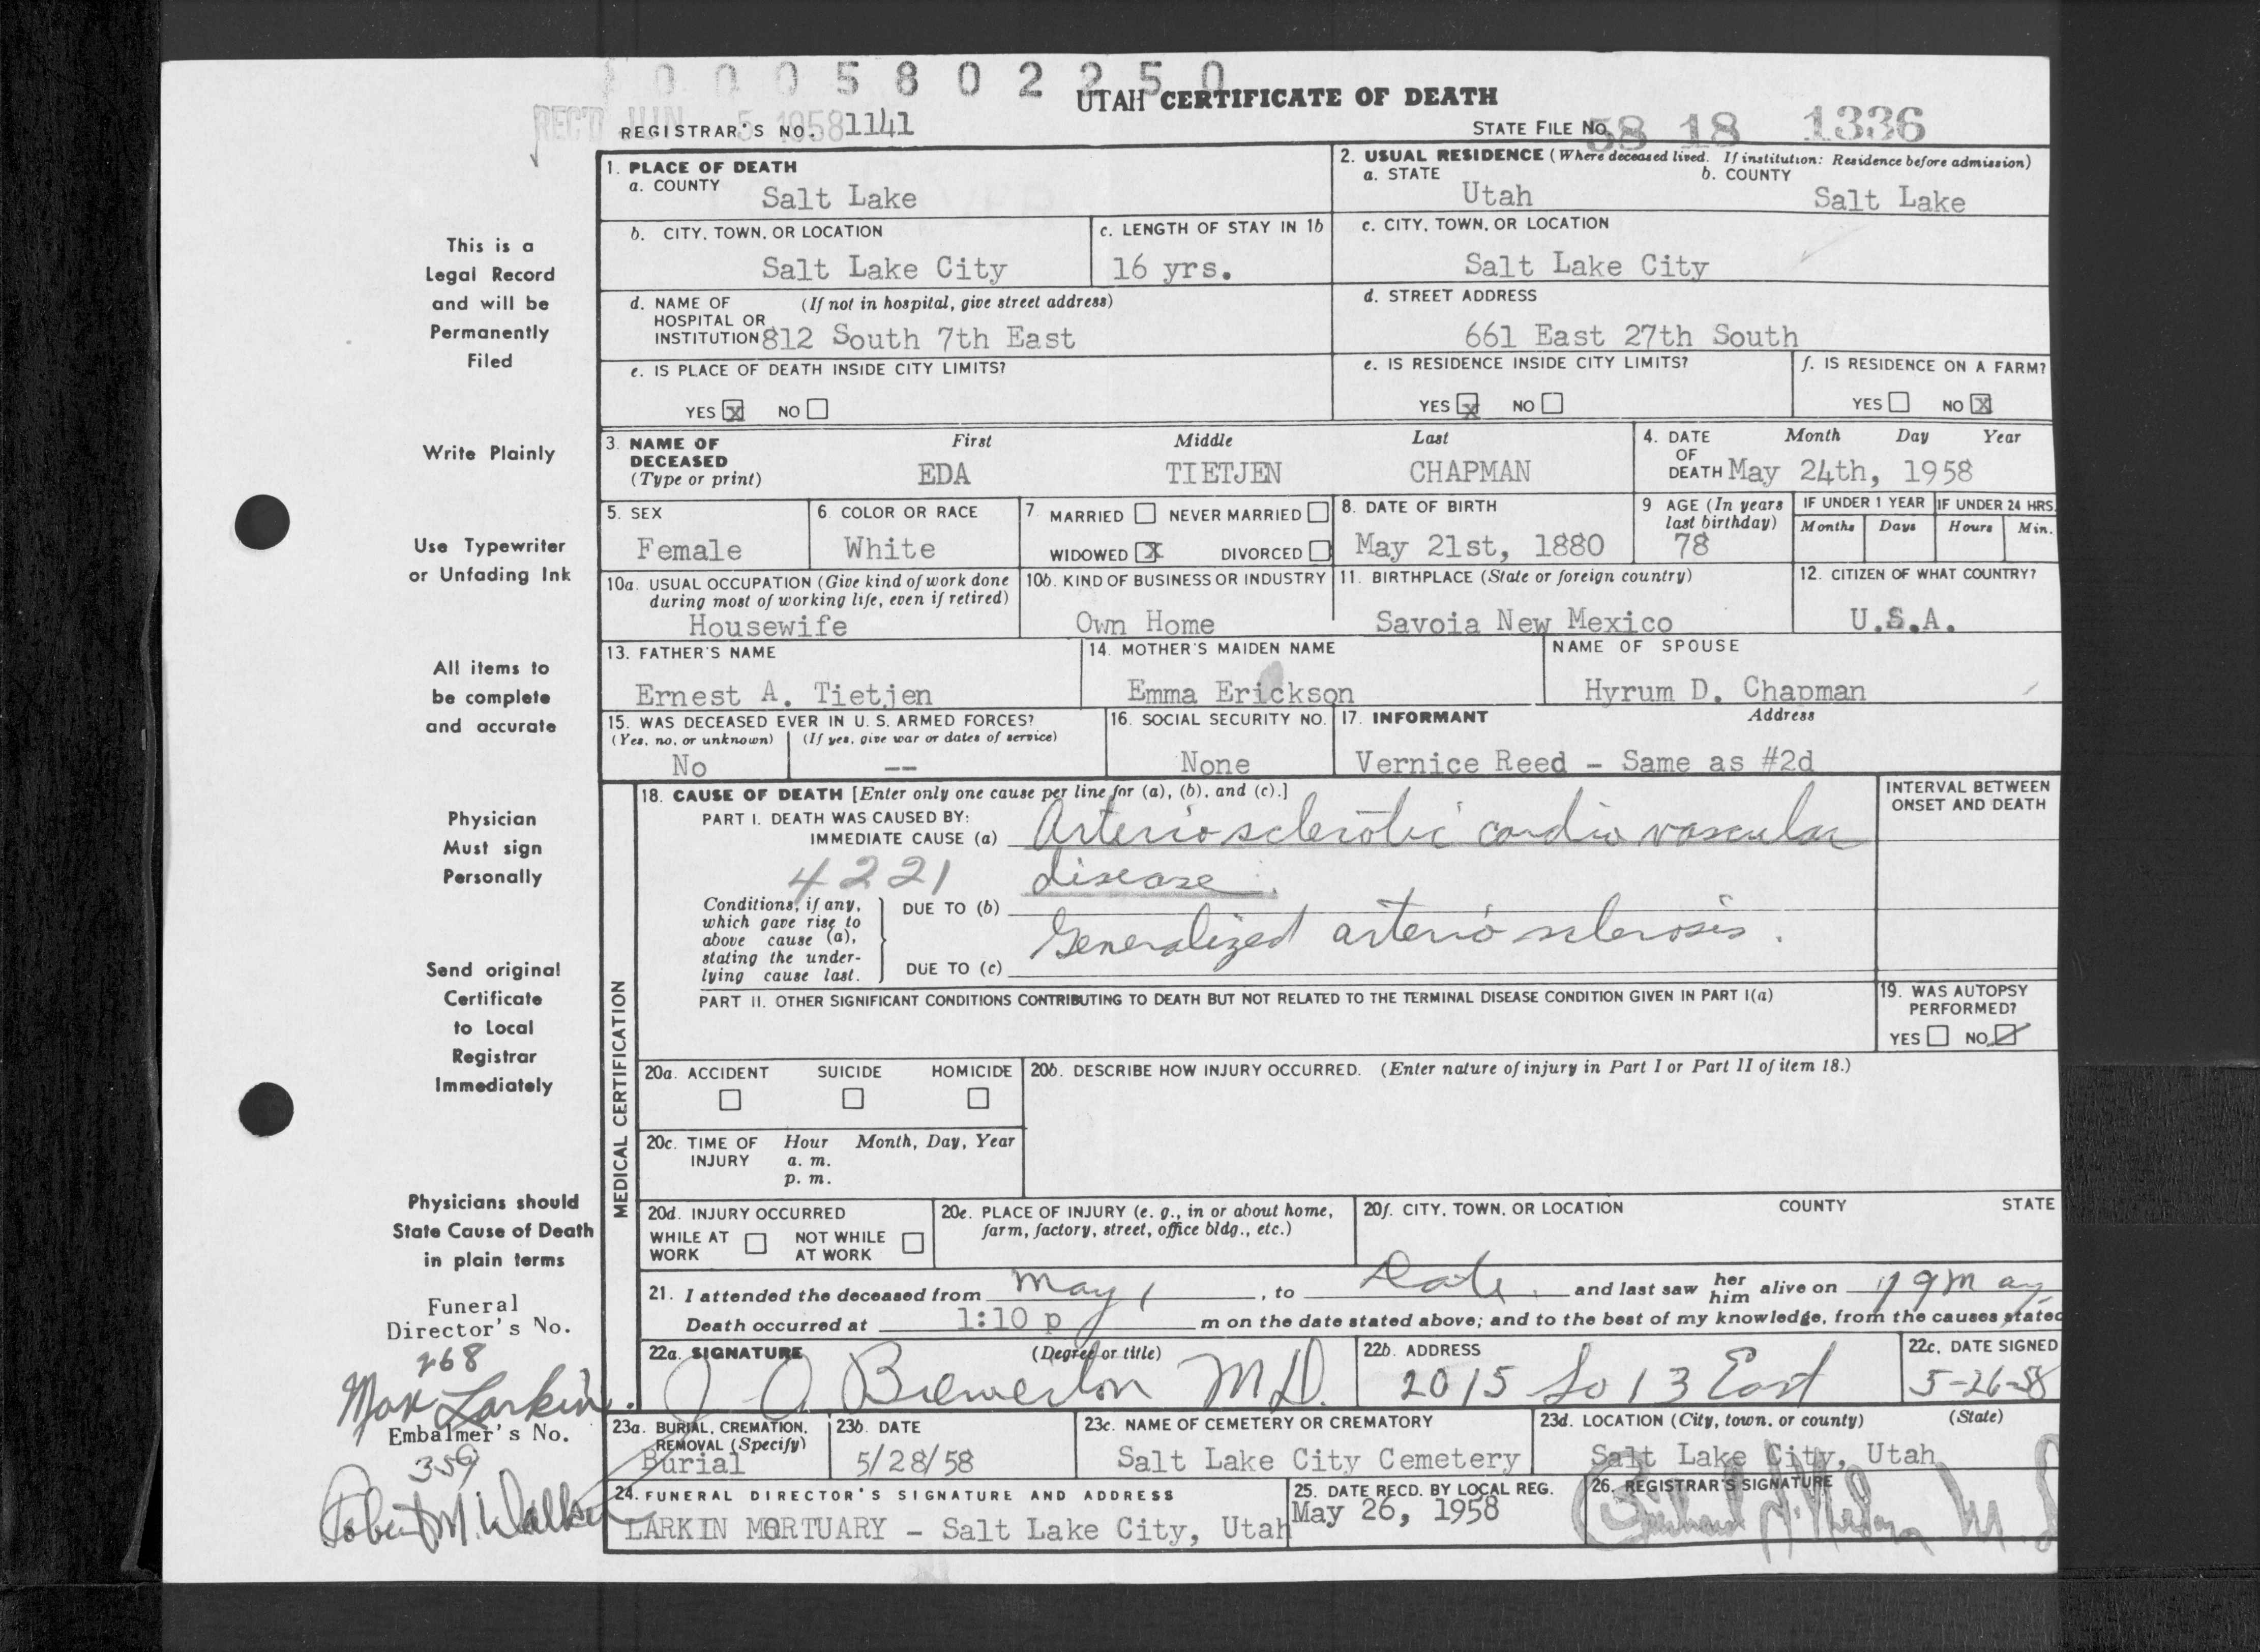 0 0 0 5 8 0 2 2 5 0
UTAH CERTIFICATE OF DEATH
REC'D JUN 5 1958
REGISTRAR'S NO. 1141
STATE FILE NO. 58 18 1336
1. PLACE OF DEATH
a. COUNTY
Salt Lake
2. USUAL RESIDENCE (Where deceased lived. If institution: Residence before admission)
a. STATE
Utah
b. COUNTY
Salt Lake
b. CITY, TOWN, OR LOCATION
Salt Lake City
c. LENGTH OF STAY IN 1b
16 yrs.
c. CITY, TOWN, OR LOCATION
Salt Lake City
d. NAME OF (If not in hospital, give street address)
HOSPITAL OR
INSTITUTION 812 South 7th East
d. STREET ADDRESS
661 East 27th South
e. IS PLACE OF DEATH INSIDE CITY LIMITS?
YES X NO
e. IS RESIDENCE INSIDE CITY LIMITS?
YES X NO
f. IS RESIDENCE ON A FARM?
YES NO X
3. NAME OF DECEASED (Type or print)
First Middle Last
EDA TIETJEN CHAPMAN
4. DATE OF DEATH
Month Day Year
May 24th, 1958
5. SEX
Female
6. COLOR OR RACE
White
7. MARRIED NEVER MARRIED
WIDOWED X DIVORCED
8. DATE OF BIRTH
May 21st, 1880
9 AGE (In years last birthday)
78
IF UNDER 1 YEAR
Months Days
IF UNDER 24 HRS.
Hours Min.
10a. USUAL OCCUPATION (Give kind of work done
during most of working life, even if retired)
Housewife
10b. KIND OF BUSINESS OR INDUSTRY
Own Home
11. BIRTHPLACE (State or foreign country)
Savoia New Mexico
12. CITIZEN OF WHAT COUNTRY?
U.S.A.
13. FATHER'S NAME
Ernest A. Tietjen
14. MOTHER'S MAIDEN NAME
Emma Erickson
NAME OF SPOUSE
Hyrum D. Chapman
15. WAS DECEASED EVER IN U. S. ARMED FORCES?
(Yes, no, or unknown) (If yes, give war or dates of service)
No --
16. SOCIAL SECURITY NO.
None
17. INFORMANT Address
Vernice Reed - Same as #2d
MEDICAL CERTIFICATION
18. CAUSE OF DEATH [Enter only one cause per line for (a), (b), and (c).]
PART I. DEATH WAS CAUSED BY:
IMMEDIATE CAUSE (a) Arteriosclerotic cardio vascular
4221 disease.
Conditions, if any,
which gave rise to
above cause (a),
stating the under-
lying cause last.
DUE TO (b)
Generalized arterio sclerosis.
DUE TO (c)
INTERVAL BETWEEN
ONSET AND DEATH
PART II. OTHER SIGNIFICANT CONDITIONS CONTRIBUTING TO DEATH BUT NOT RELATED TO THE TERMINAL DISEASE CONDITION GIVEN IN PART I(a)
19. WAS AUTOPSY
PERFORMED?
YES NO
20a. ACCIDENT SUICIDE HOMICIDE
20b. DESCRIBE HOW INJURY OCCURRED. (Enter nature of injury in Part I or Part II of item 18.)
20c. TIME OF INJURY
Hour Month, Day, Year
a. m.
p. m.
20d. INJURY OCCURRED
WHILE AT WORK NOT WHILE AT WORK
20e. PLACE OF INJURY (e. g., in or about home,
farm, factory, street, office bldg., etc.)
20f. CITY, TOWN, OR LOCATION COUNTY STATE
21. I attended the deceased from May 1, to Date. and last saw her him alive on 19 May
Death occurred at 1:10 p m on the date stated above; and to the best of my knowledge, from the causes stated
22a. SIGNATURE (Degree or title)
J A Brewerton MD.
22b. ADDRESS
2015 So 13 East
22c. DATE SIGNED
5-26-58
23a. BURIAL, CREMATION,
REMOVAL (Specify)
Burial
23b. DATE
5/28/58
23c. NAME OF CEMETERY OR CREMATORY
Salt Lake City Cemetery
23d. LOCATION (City, town, or county) (State)
Salt Lake City, Utah
24. FUNERAL DIRECTOR'S SIGNATURE AND ADDRESS
LARKIN MORTUARY - Salt Lake City, Utah
25. DATE RECD. BY LOCAL REG.
May 26, 1958
26. REGISTRAR'S SIGNATURE
This is a
Legal Record
and will be
Permanently
Filed
Write Plainly
Use Typewriter
or Unfading Ink
All items to
be complete
and accurate
Physician
Must sign
Personally
Send original
Certificate
to Local
Registrar
Immediately
Physicians should
State Cause of Death
in plain terms
Funeral
Director's No.
268
Max Larkin.
Embalmer's No.
359
Robert M. Walker